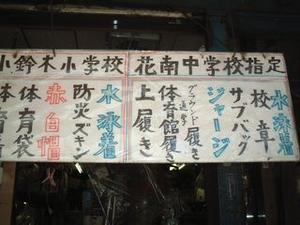 小鈴木小学校 花南中学校指定
水泳着
校章
サブバック
ジャージ
グラウンド履き
体育館履き
上履き
水泳着
防火ズキン
赤白帽
体育袋
体育